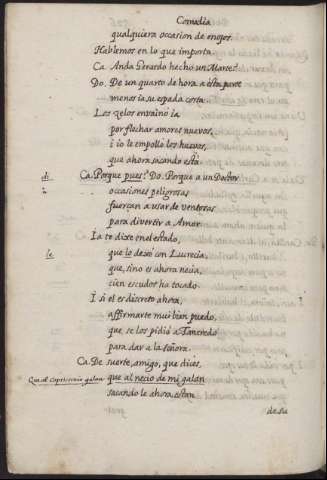 Comedia
qualquiera occasion de enojos.
Hablemos en lo que importa.
Ca. Anda Gerardo hecho un Marte?
Do. De un quarto de hora a esta parte
menos ia su espada corta.
Los zelos envaino ia
por flechar amores nuevos,
i io le empollo los huevos,
que ahora sacando està
di Ca. Porque pues? Do. Porque a un Doctor
occasiones peligrosas
fuerzan a usar de ventosas
para divertir a Amor.
Ia te dixe en el estado,
le que lo dexò con Lucrecia,
que, sino es ahora necia,
cien escudos ha tocado.
I si el es discreto ahora,
affirmarte mui bien puedo,
que se los pidiò a Tancredo
para dar a la señora.
Ca. De suerte, amigo, que dices,
Que al capricornio galan que al necio de mi galan
sacando le ahora estan
de su